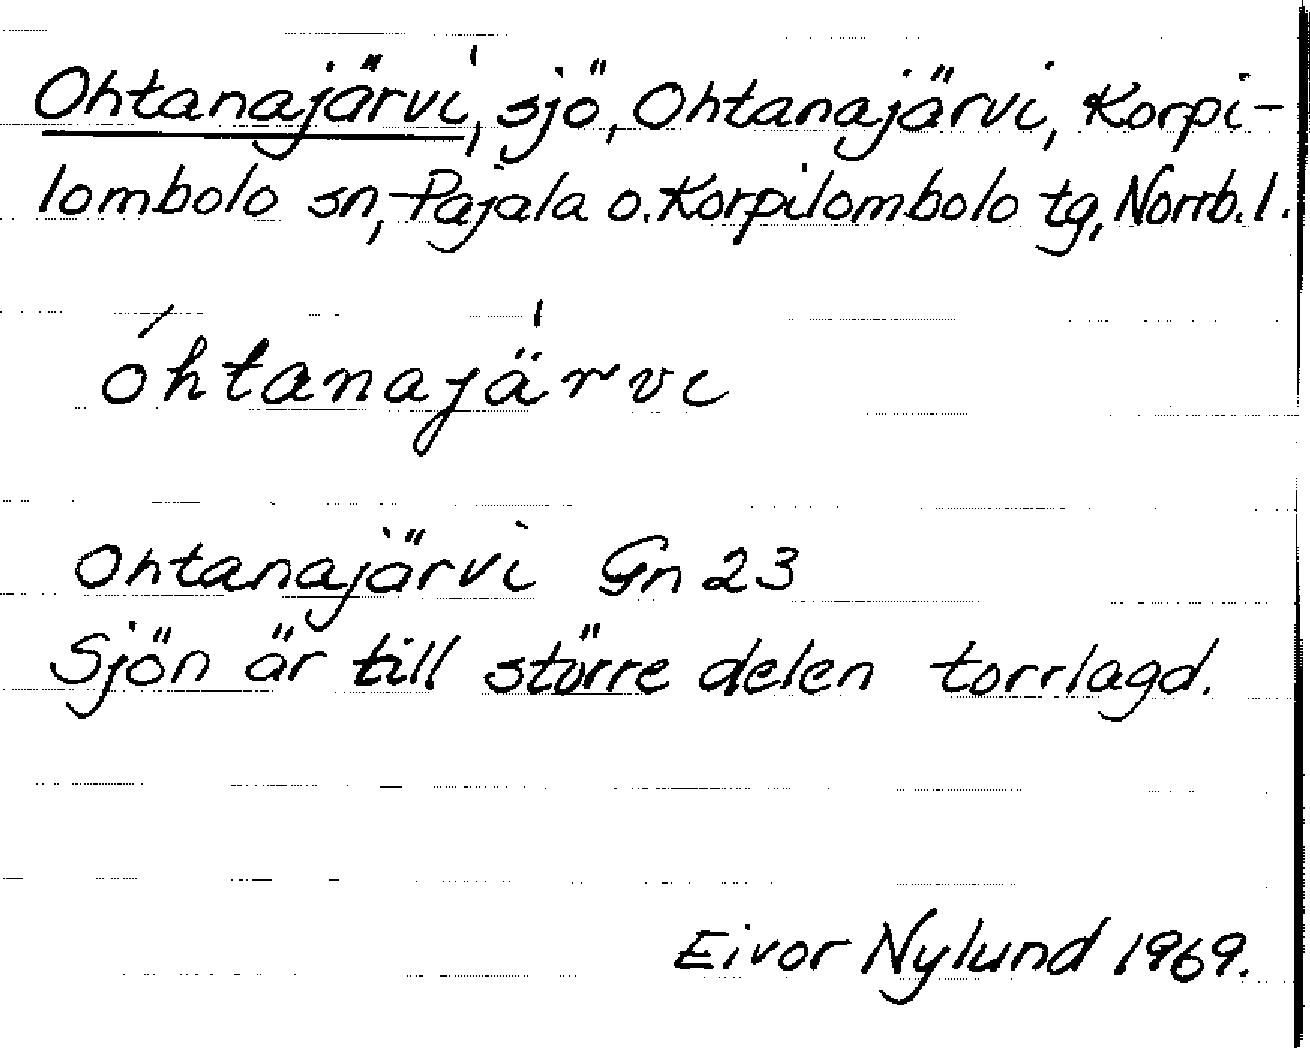 Ohtanajärvi, sjö, Ohtanajärvi, Korpi-
lombolo sn, Pajala o. Korpilombolo tg, Norrb. l.
óhtanajä̀rvi
Ohtanajärvi Gn 23
Sjön är till större delen torrlagd.
Eivor Nylund 1969.